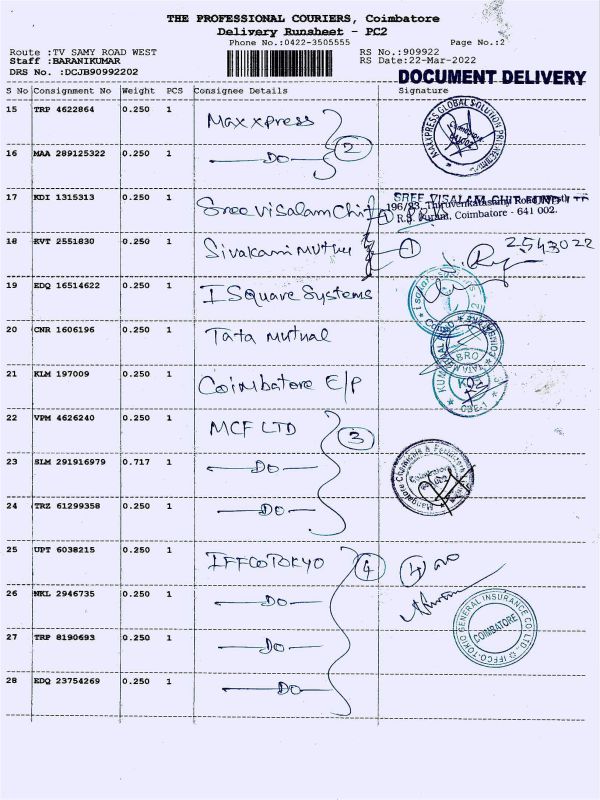 THE PROFESSIONAL COURIERS, Coimbatore
Delivery Runsheet - PC2
Phone No.:0422-3505555 Page No.:2
Route :TV SAMY ROAD WEST RS No.:909922
Staff :BARANIKUMAR RS Date:22-Mar-2022
DRS No. :DCJB90992202 DOCUMENT DELIVERY
S No Consignment No Weight PCS Consignee Details Signature
15 TRP 4622864 0.250 1 Maxxpress
MAXXPRESS GLOBAL SOLUTION PRIVATE
16 MAA 289125322 0.250 1 —DO— 2
17 KDI 1315313 0.250 1 Sree Visalam Chit 1
SREE VISALAM CHIT FUND LTD
196/83, Thiruvenkatasamy Road
R.S. Puram, Coimbatore - 641 002.
18 KVT 2551830 0.250 1 Sivakami Muthu 1
2543022
19 EDQ 16514622 0.250 1 I Square Systems
20 CNR 1606196 0.250 1 Tata mutual
BRO
21 KLM 197009 0.250 1 Coimbatore E/P
CBE-1
22 VPM 4626240 0.250 1 MCF LTD 3
23 SLM 291916979 0.717 1 —DO—
Mangalore Chemicals & Fertilizers
Coimbatore
24 TRZ 61299358 0.250 1 —DO—
25 UPT 6038215 0.250 1 IFFCO TOKYO 4
26 NKL 2946735 0.250 1 —DO—
IFFCO-TOKIO GENERAL INSURANCE CO LTD.
COIMBATORE
27 TRP 8190693 0.250 1 —DO—
28 EDQ 23754269 0.250 1 —DO—